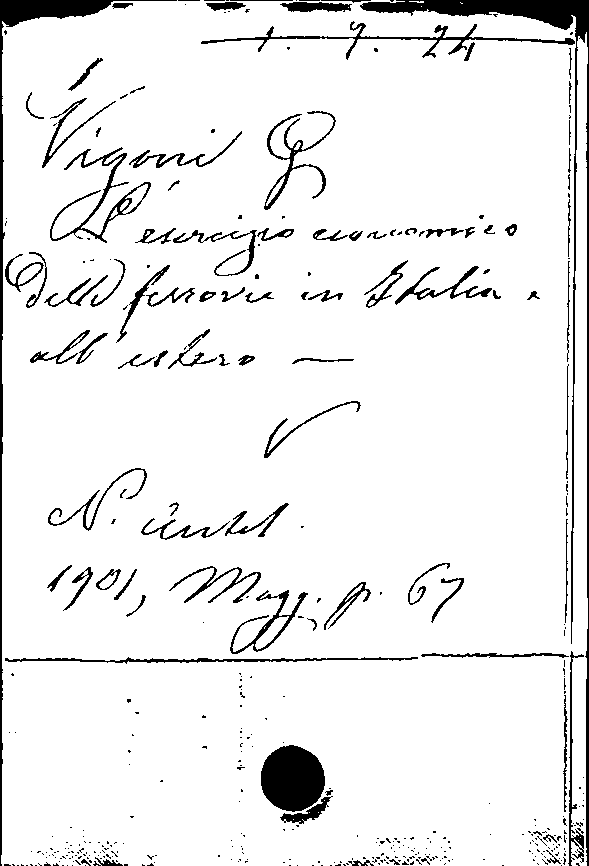 1. 7. 24
Vigoni G
L'esercizio economico
delle ferrovie in Italia e
all'estero —
N. Antol.
1901, Magg. p. 67